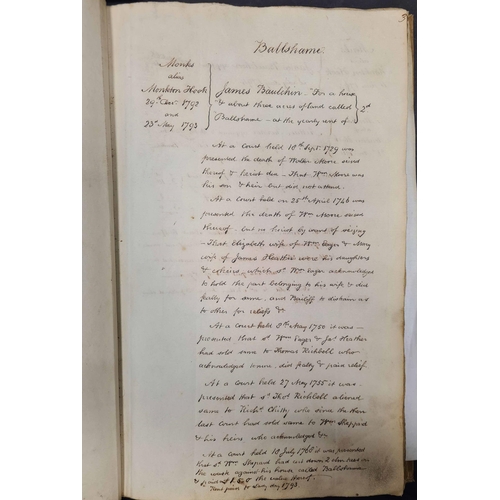 3
Ballshame
Monks
alias
Monkton Hook
29th Oct. 1792
and
23d May 1793
James Baulchin For a house
& about three acres of land called
Ballshame – at the yearly rent of
2d
At a Court held 10th Sept. 1729 was
presented the death of Walter Moore since
thereof & heriot due – That Wm. Moore was
his son & heir but did not attend.
At a Court held on 25th April 1746 was
presented the death of Wm. Moore seized
thereof – but no heriot by want of seizing
– That Elizabeth wife of Wm. Eager & Mary
wife of James Heather were his daughters
& coheirs, which sd. Wm. Eager acknowledged
to hold the part belonging to his wife & did
fealty for same, and Bailiff to distrain as
to other for reliefs &c
At a Court held 8th May 1750 it was
presented that sd. Wm. Eager & Jas. Heather
had sold same to Thomas Kichbell who
acknowledged tenure, did fealty & paid relief.
At a Court held 27 May 1755 it was
presented that sd. Thos. Kichbell aliened
same to Richd. Chitty who since the then
last Court had sold same to Wm. Shappard
& his heirs who acknowledged &c
At a Court held 10 July 1760 it was presented
that sd. Wm. Shepard had cut down 2 elm trees on
the waste against his house called Ballshame
& paid
the value thereof.
1793